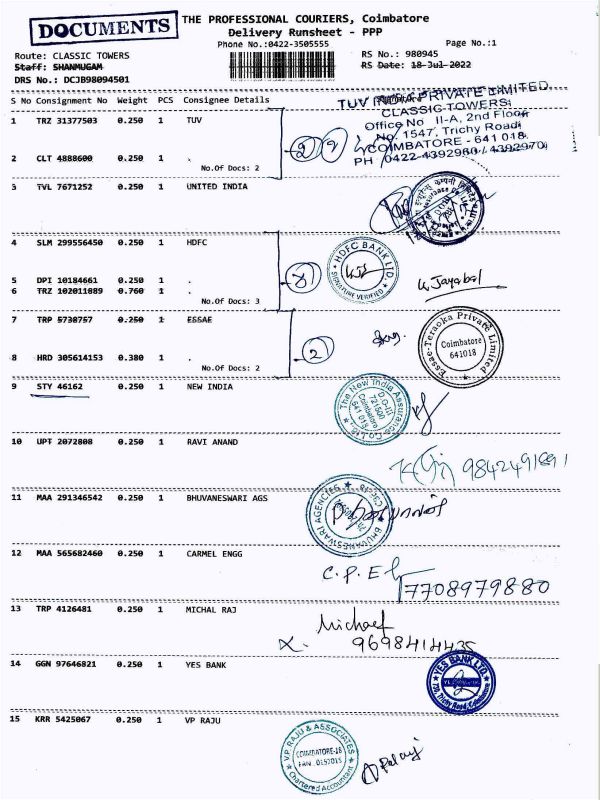 DOCUMENTS
THE PROFESSIONAL COURIERS, Coimbatore
Delivery Runsheet - PPP
Phone No.:0422-3505555
Page No.:1
Route: CLASSIC TOWERS
RS No.: 980945
Staff: SHANMUGAM
RS Date: 18-Jul-2022
DRS No.: DCJB98094501
S No Consignment No Weight PCS Consignee Details
TUV INDIA PRIVATE LIMITED
CLASSIC TOWERS
Office No II-A, 2nd Floor
No. 1547, Trichy Road
COIMBATORE - 641 018.
PH 0422-4392960 / 4392970
1 TRZ 31377503 0.250 1 TUV
2 CLT 4888600 0.250 1 .
No.Of Docs: 2
2
3 TVL 7671252 0.250 1 UNITED INDIA
4 SLM 299556450 0.250 1 HDFC
HDFC BANK LTD.
SIGNATURE VERIFIED
5 DPI 10184661 0.250 1 .
6 TRZ 102011889 0.760 1 .
No.Of Docs: 3
Jayabal
7 TRP 5738757 0.250 1 ESSAE
Essae-Teraoka Private Limited
Coimbatore
641018
8 HRD 305614153 0.380 1 .
No.Of Docs: 2
2
9 STY 46162 0.250 1 NEW INDIA
The New India Assurance Co. Ltd.
D.O-II
721500
Coimbatore
641 018
10 UPT 2072808 0.250 1 RAVI ANAND
11 MAA 291346542 0.250 1 BHUVANESWARI AGS
BHUVANESWARI AGENCIES
12 MAA 565682460 0.250 1 CARMEL ENGG
C.P.E
7708979880
13 TRP 4126481 0.250 1 MICHAL RAJ
Michael
9698414435
14 GGN 97646821 0.250 1 YES BANK
YES BANK LTD.
15 KRR 5425067 0.250 1 VP RAJU
V.P. RAJU & ASSOCIATES
COIMBATORE-18
Chartered Accountant